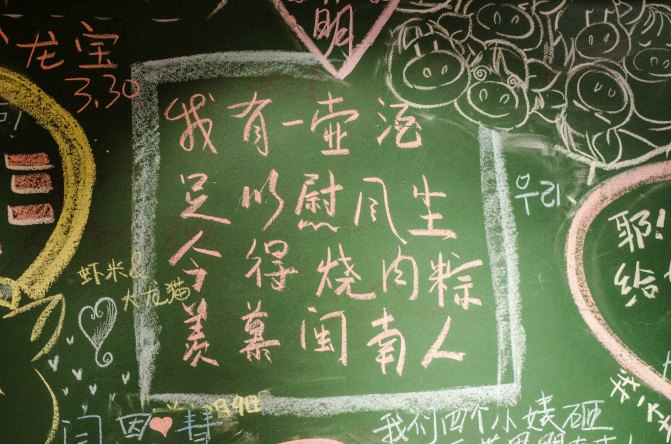 小龙宝
3.30
明
我有一壶酒
足以慰风生
今得烧肉粽
羡慕闽南人
우리
耶!
给
虾米&
大龙猫
我们四个小